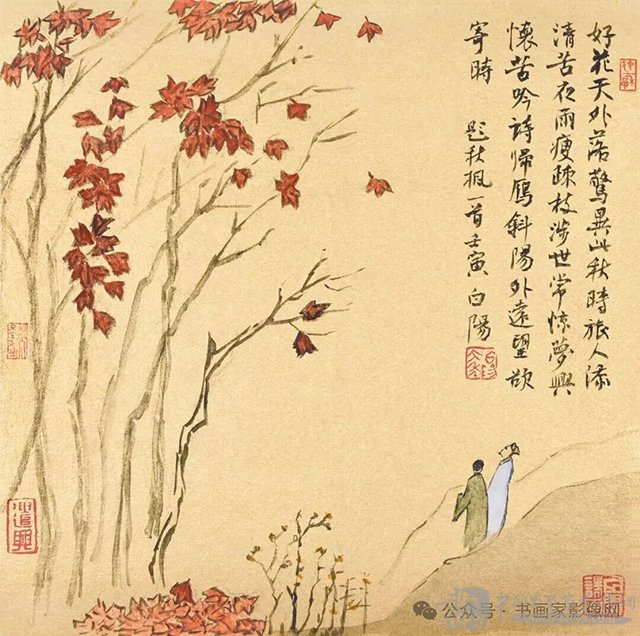 好花天外落驚異此秋時旅人添
清苦夜雨瘦疎枝涉世常惊夢興
懷苦吟詩歸雁斜陽外遠望欲
寄時 题秋楓一首壬寅 白陽
公众号 · 书画家影像网